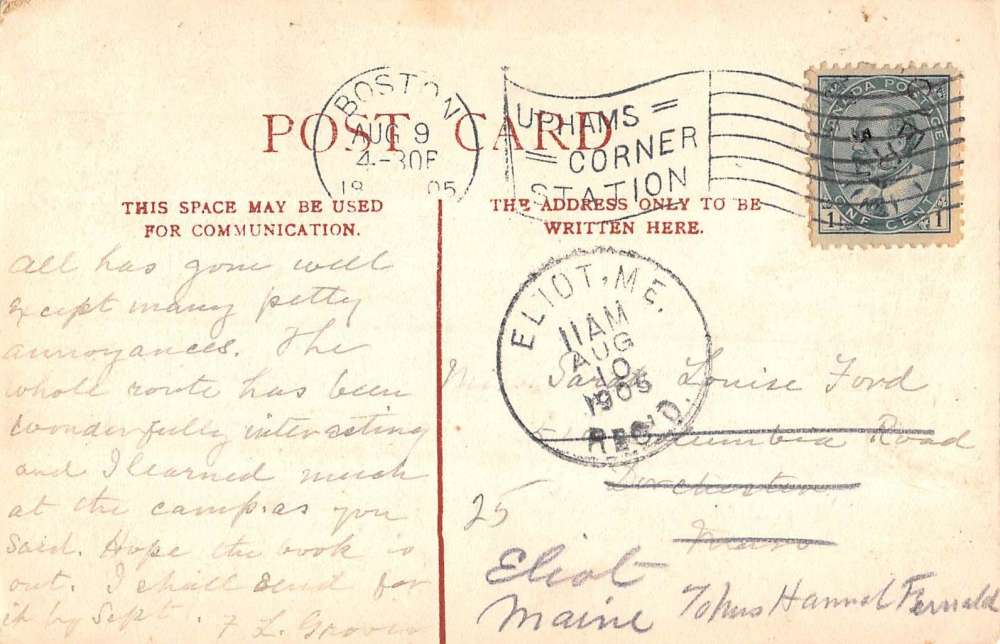 POST CARD
BOSTON
AUG 9
4-30P
18 05
UPHAMS
CORNER
STATION
CANADA POSTAGE
1 ONE CENT 1
THIS SPACE MAY BE USED
FOR COMMUNICATION.
THE ADDRESS ONLY TO BE
WRITTEN HERE.
All has gone well
Except many petty
annoyances. The
whole route has been
wonderfully interesting
and I learned much
at the camp. as you
said. Hope the book is
out. I shall send for
it by Sept.
F L.
ELIOT, ME.
11 AM
AUG
10
1905
REC'D.
Sarah Louise Ford
Columbia Road
Dorchester
Mass
25
Eliot
Maine
Hannah Fernald